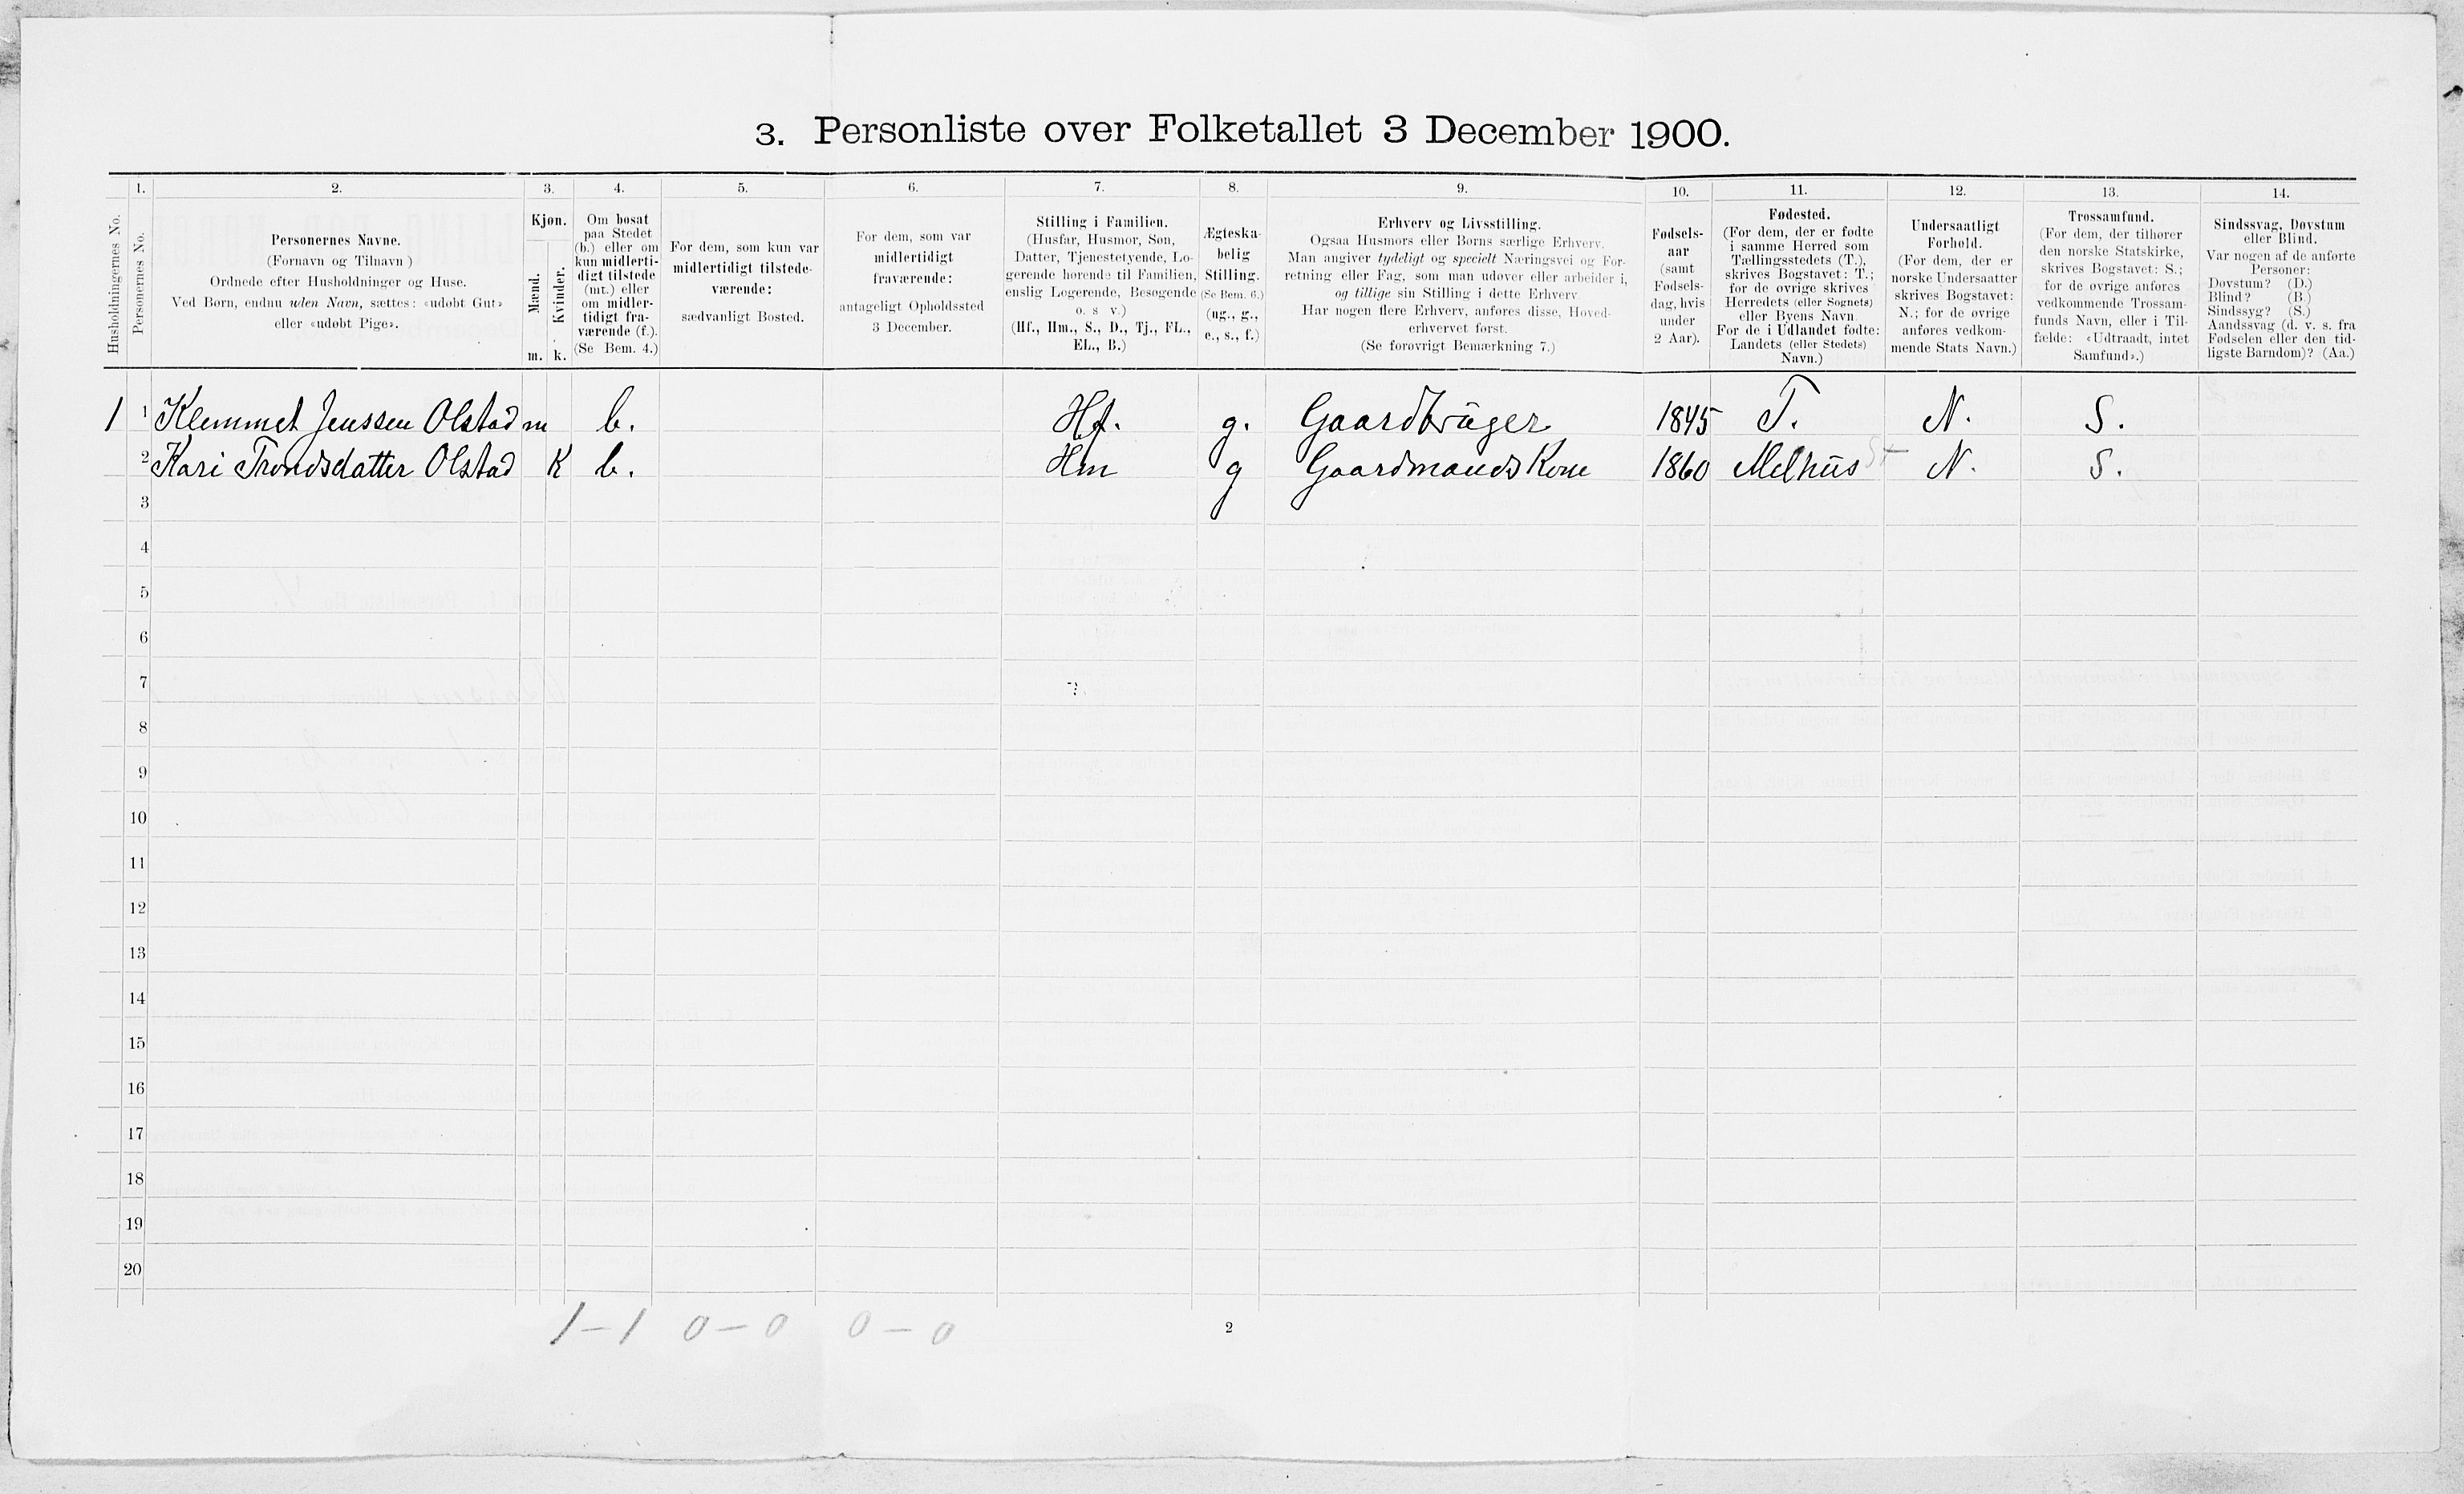 3. Personliste over Folketallet 3 December 1900.
1. 2. 3. 4. 5. 6. 7. 8. 9. 10. 11. 12. 13. 14.
Husholdningernes No.
Personernes No.
Personernes Navne.
(Fornavn og Tilnavn)
Ordnede efter Husholdninger og Huse.
Ved Børn, endnu uden Navn, sættes: «udøbt Gut»
eller «udøbt Pige».
Kjøn.
Mænd.
Kvinder.
m. k.
Om bosat
paa Stedet
(b.) eller om
kun midlerti-
digt tilstede
(mt.) eller
om midler-
tidigt fra-
værende (f.).
(Se Bem. 4.)
For dem, som kun var
midlertidigt tilstede-
værende:
sædvanligt Bosted.
For dem, som var
midlertidigt
fraværende:
antageligt Opholdssted
3 December.
Stilling i Familien.
(Husfar, Husmor, Søn,
Datter, Tjenestetyende, Lo-
gerende hørende til Familien,
enslig Logerende, Besøgende
o. s v.)
(Hf., Hm., S., D., Tj., FL.,
EL., B.)
Ægteska-
belig
Stilling.
(Se Bem. 6.)
(ug., g.,
e., s., f.)
Erhverv og Livsstilling.
Ogsaa Husmors eller Børns særlige Erhverv.
Man angiver tydeligt og specielt Næringsvei og For-
retning eller Fag, som man udøver eller arbeider i,
og tillige sin Stilling i dette Erhverv.
Har nogen flere Erhverv, anføres disse, Hoved-
erhvervet først.
(Se forøvrigt Bemærkning 7.)
Fødsels-
aar
(samt
Fødsels-
dag, hvis
under
2 Aar).
Fødested.
(For dem, der er fødte
i samme Herred som
Tællingsstedets (T.),
skrives Bogstavet: T.;
for de øvrige skrives
Herredets (eller Sognets)
eller Byens Navn.
For de i Udlandet fødte:
Landets (eller Stedets)
Navn.)
Undersaatligt
Forhold.
(For dem, der er
norske Undersaatter
skrives Bogstavet:
N.; for de øvrige
anføres vedkom-
mende Stats Navn.)
Trossamfund.
(For dem, der tilhører
den norske Statskirke,
skrives Bogstavet: S.;
for de øvrige anføres
vedkommende Trossam-
funds Navn, eller i Til-
fælde: «Udtraadt, intet
Samfund».)
Sindssvag, Døvstum
eller Blind.
Var nogen af de anførte
Personer:
Døvstum? (D.)
Blind? (B.)
Sindssyg? (S.)
Aandssvag (d. v. s. fra
Fødselen eller den tid-
ligste Barndom)? (Aa.)
1 1 Klemmet Jenssen Olstad m b. Hf. g. Gaardbrüger 1845 T. N. S.
2 Kari Trondsdatter Olstad K b. Hm g Gaardmands Kone 1860 Melhüs St N. S.
3
4
5
6
7
8
9
10
11
12
13
14
15
16
17
18
19
20
1 - 1 0 - 0 0 - 0
2